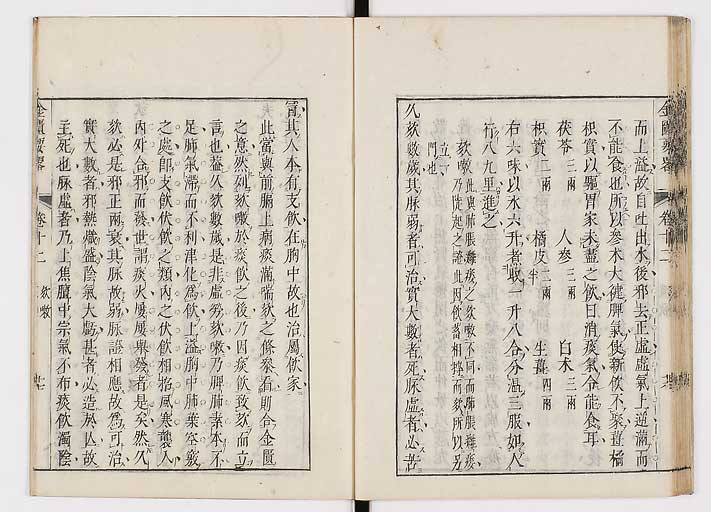 而上溢故自吐出水後邪去正虛虛氣上逆滿而
不能食也所以參朮大健脾氣使新飲不聚薑橘
枳實以驅胃家未盡之飲日消痰氣令能食耳
茯苓 三兩 人參 三兩 白朮 三兩
枳實 二兩 橘皮 二兩半 生薑 四兩
右六味以水六升煮取一升八合分溫三服如人
行八九里進之
欬嗽 此與肺脹癰痿之欬嗽不同而肺脹癰痿
欬嗽乃陡起之證此因飲蓄相搏而欬所以另
立一門也
久欬數歲其脈弱者可治實大數者死脈虛者必苦
冒其人本有支飲在胸中故也治屬飲家
此當與前膈上病痰滿喘欬之條參看則合金匱
之意然列欬嗽於痰飲之後乃因痰飲致欬而立
言也蓋久欬數歲是非虛勞欬嗽乃脾肺素本不
足肺氣滯而不利津化為飲上溢胸中肺葉空竅
之處即支飲伏飲之類內之伏飲相招風寒襲入
內外合邪而發世謂痰火屢屢舉發者是矣然久
欬必是邪正兩衰其脈故弱脈證相應故為可治
實大數者邪熱熾盛陰氣大虧甚者必造於亡故
主死也脈虛者乃上焦膻中宗氣不布痰飲濁陰
金匱要略 卷十二
金匱要略 卷十二 欬嗽